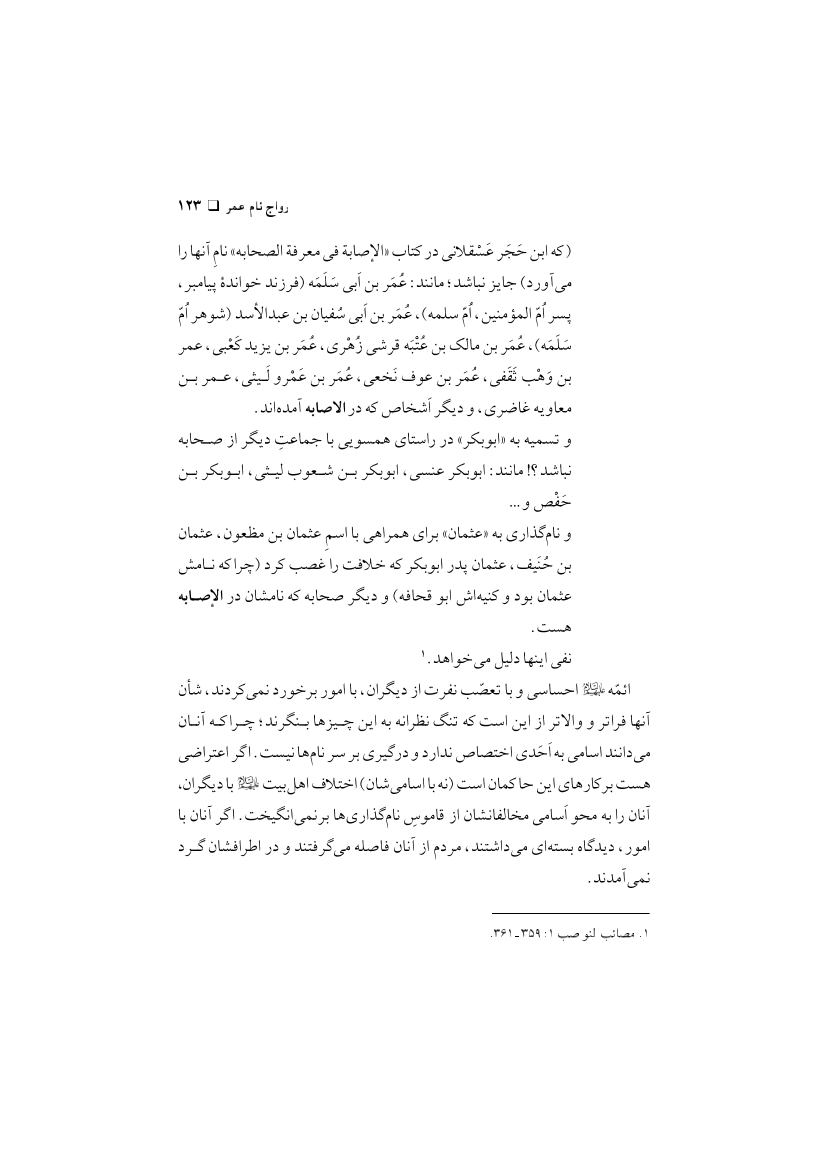 رواج نام عمر ❏ ۱۲۳
(که ابن حَجَر عَسْقلانی در کتاب «الإصابة فی معرفة الصحابه» نامِ آنها را
می‌آورد) جایز نباشد؛ مانند: عُمَر بن اَبی سَلَمَه (فرزند خواندهٔ پیامبر،
پسر اُمّ المؤمنین، اُمّ سلمه)، عُمَر بن اَبی سُفیان بن عبدالأسد (شوهر اُمّ
سَلَمَه)، عُمَر بن مالک بن عُتْبَه قرشی زُهْری، عُمَر بن یزید کَعْبی، عمر
بن وَهْب ثَقَفی، عُمَر بن عوف نَخعی، عُمَر بن عَمْرو لَـیثی، عـمر بـن
معاویه غاضری، و دیگر اَشخاص که در الاصابه آمده‌اند.
و تسمیه به «ابوبکر» در راستای همسویی با جماعتِ دیگر از صـحابه
نباشد؟! مانند: ابوبکر عنسی، ابوبکر بـن شـعوب لیـثی، ابـوبکر بـن
حَفْص و...
و نام‌گذاری به «عثمان» برای همراهی با اسمِ عثمان بن مظعون، عثمان
بن حُنَیف، عثمان پدر ابوبکر که خلافت را غصب کرد (چراکه نـامش
عثمان بود و کنیه‌اش ابو قحافه) و دیگر صحابه که نامشان در الإصـابه
هست.
نفی اینها دلیل می‌خواهد.۱
ائمّه احساسی و با تعصّب نفرت از دیگران، با امور برخورد نمی‌کردند، شأن
آنها فراتر و والاتر از این است که تنگ نظرانه به این چـیزها بـنگرند؛ چـراکـه آنـان
می‌دانند اسامی به اَحَدی اختصاص ندارد و درگیری بر سر نام‌ها نیست. اگر اعتراضی
هست برکارهای این حاکمان است (نه با اسامی‌شان) اختلاف اهل‌بیت با دیگران،
آنان را به محو اَسامی مخالفانشان از قاموسِ نام‌گذاری‌ها برنمی‌انگیخت. اگر آنان با
امور، دیدگاه بسته‌ای می‌داشتند، مردم از آنان فاصله می‌گرفتند و در اطرافشان گـرد
نمی‌آمدند.
۱. مصائب لنو صب ۱: ۳۵۹ـ۳۶۱.